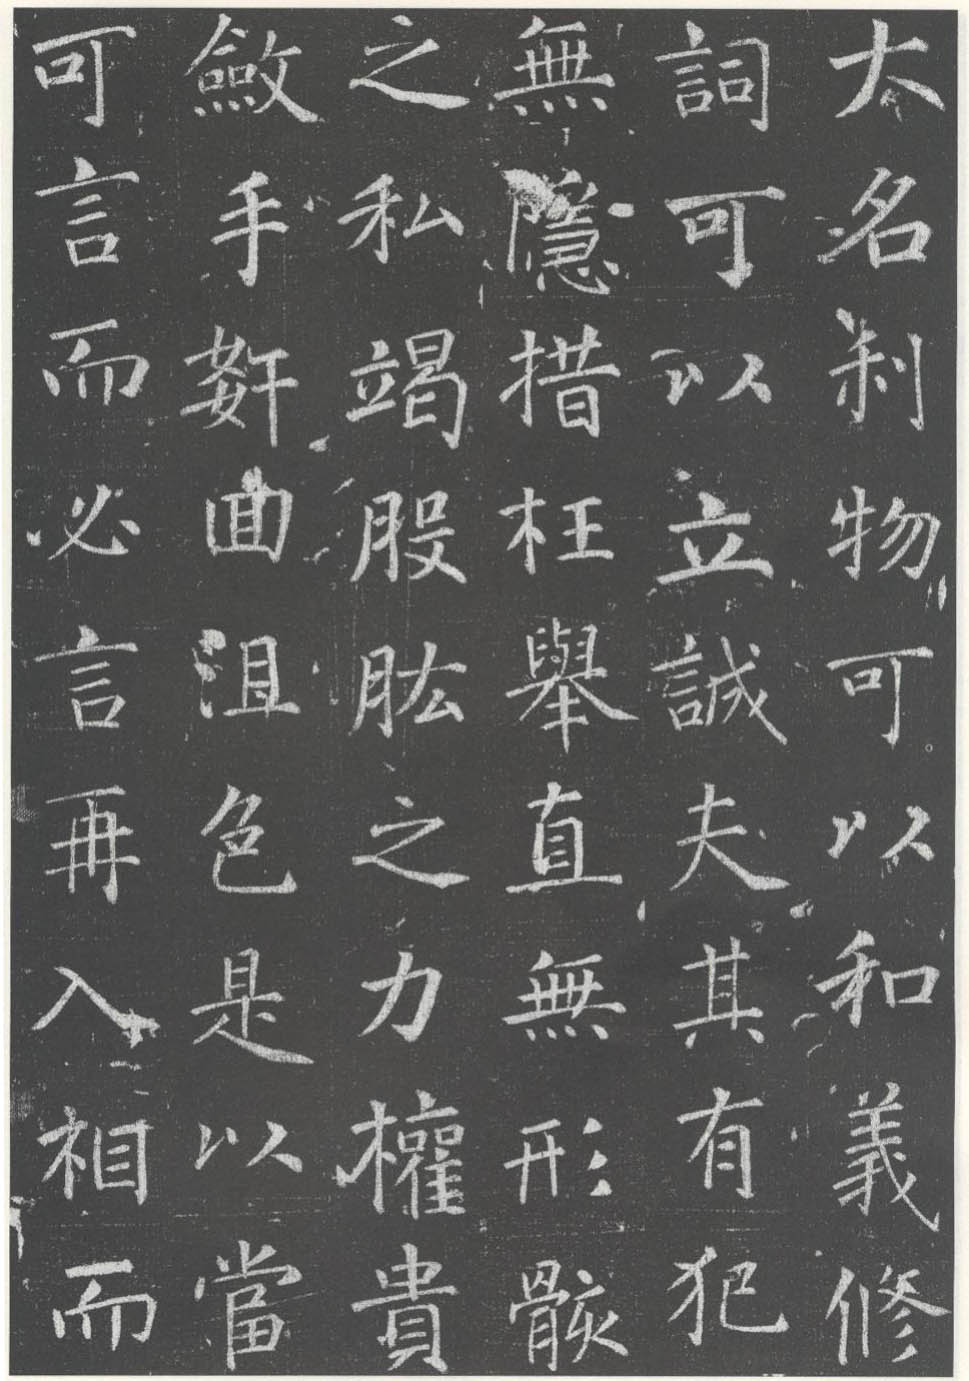 太名刹物可以和義修
詞可以立誠夫其有犯
無隱措枉舉直無形骸
之私竭股肱之力權貴
斂手姧回沮色是以當
可言而必言再入相而